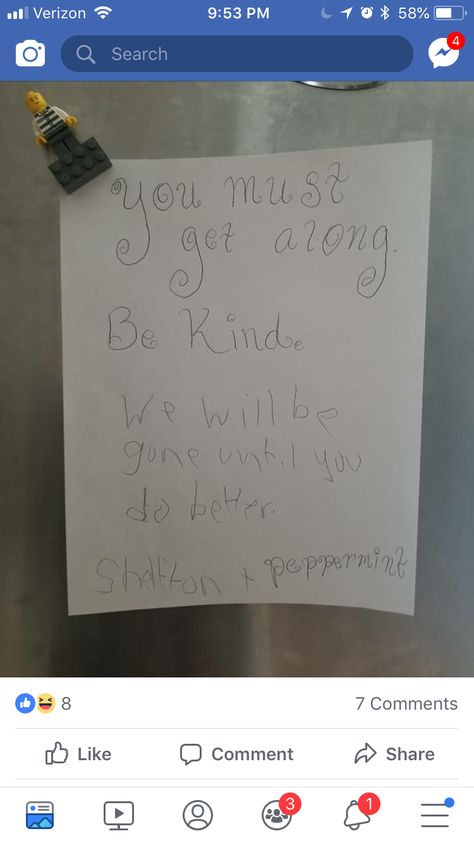 Verizon 9:53 PM 58%
Search
4
you must
get along.
Be Kind.
We will be
gone until you
do better.
Shafton + peppermint
8 7 Comments
Like Comment Share
3 1